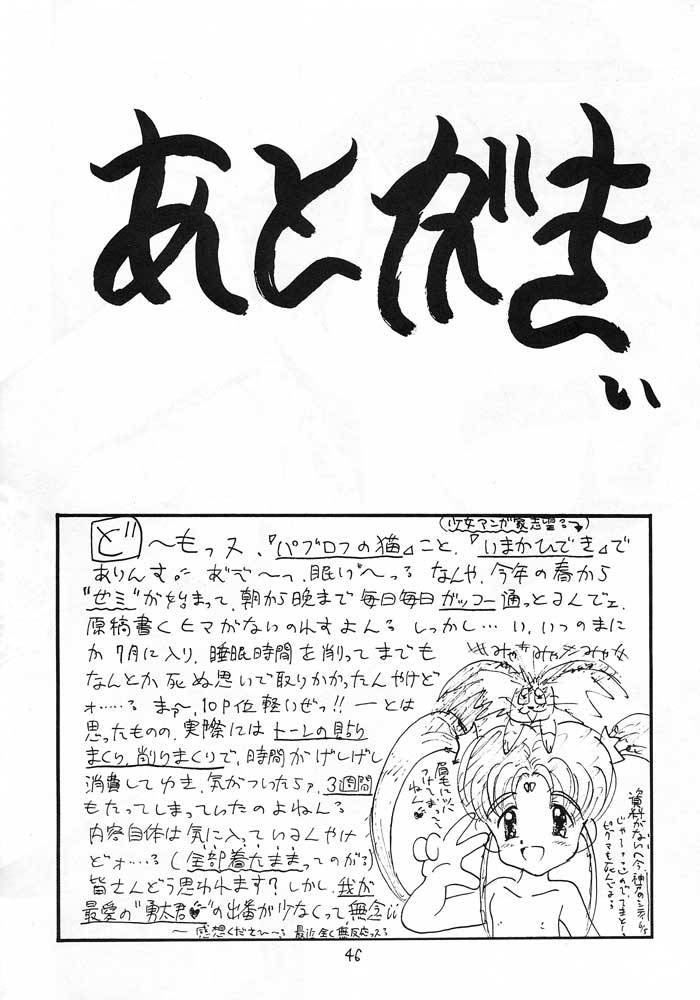 あとがき
い
(少女マンガ家志望る→)
ど〜もっス、『パブロフの猫』こと、『いまかひでき』で
ありんす。おぞ〜っ、眠い〜る なんや、今年の春から
"ゼミ"が始まって、朝から晩まで毎日毎日ガッコー通っとるんでェ、
原稿書くヒマがないのれすよんる しっかし…い、いつのまに
か7月に入り、睡眠時間を削ってまでも
なんとか死ぬ思いで取りかかったんやけど
ォ……る まぁ〜、10P位軽いぜっ!! ―とは
思ったものの、実際にはトーンの貼り
まくり、削りまくりで、時間がげしげし
消費してゆき、気がついたらァ、3週間
もたってしまっていたのよねんる
内容自体は気に入っているんやけ
どォ…る(全部着たままってのがる)
皆さんどう思われます?しかし、我が
最愛の"勇太君"の出番が少なくって、無念
〜感想くださひ〜る 最近全く無反応っスる
みゃみゃみゃ
眉毛に
つけてしまって
ねん
資料がないへん、神戸のシティ
46